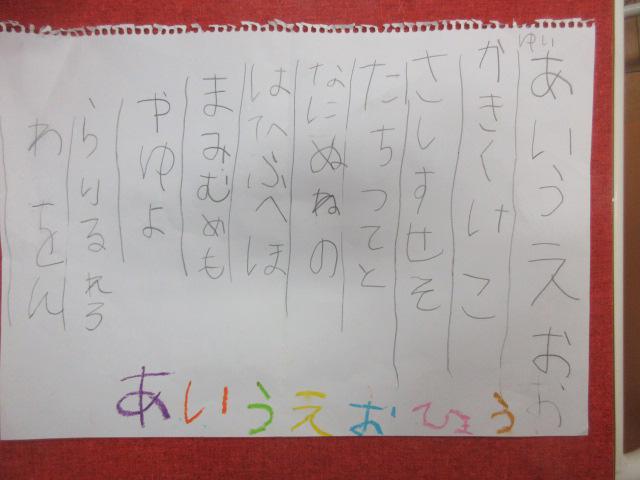 ゆい
あいうえおお
かきくけこ
さしすせそ
たちつてと
なにぬねの
はひふへほ
まみむめも
やゆよ
らりるれろ
わをん
あいうえおひょう